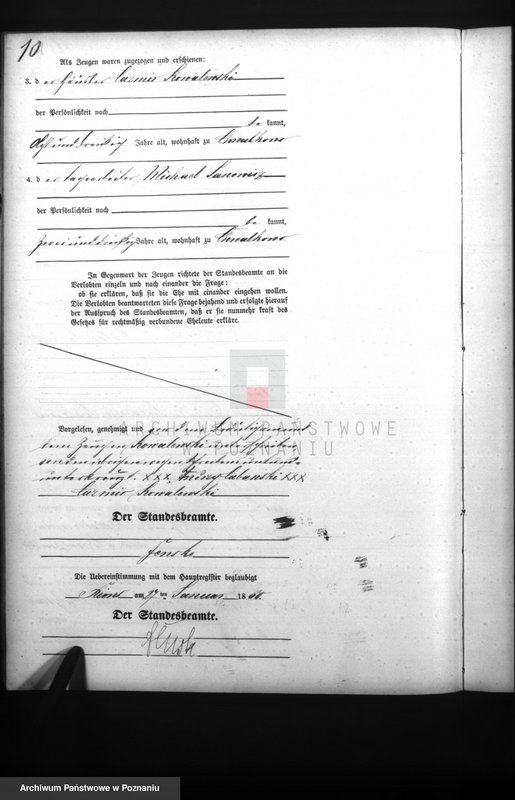 10
Als Zeugen waren zugezogen und erschienen:
3. d er Häusler Casmir Kowalewski
der Persönlichkeit nach
be kannt,
Jahre alt, wohnhaft zu Chwalkowo
4. d er Michael
der Persönlichkeit nach
be kannt,
zweiunddreißig Jahre alt, wohnhaft zu Chwalkowo
In Gegenwart der Zeugen richtete der Standesbeamte an die
Verlobten einzeln und nach einander die Frage:
ob sie erklären, daß sie die Ehe mit einander eingehen wollen.
Die Verlobten beantworteten diese Frage bejahend und erfolgte hierauf
der Ausspruch des Standesbeamten, daß er sie nunmehr kraft des
Gesetzes für rechtmäßig verbundene Eheleute erkläre.
ARCHIWUM PAŃSTWOWE
W POZNANIU
Vorgelesen, genehmigt und von dem
dem Zeugen Kowalewski unterschrieben
von den übrigen wegen
unterkreuzt. XXX XXX
Casmir Kowalewski
Der Standesbeamte.
Die Uebereinstimmung mit dem Hauptregister beglaubigt
am ten Januar 18
Der Standesbeamte.
Archiwum Państwowe w Poznaniu